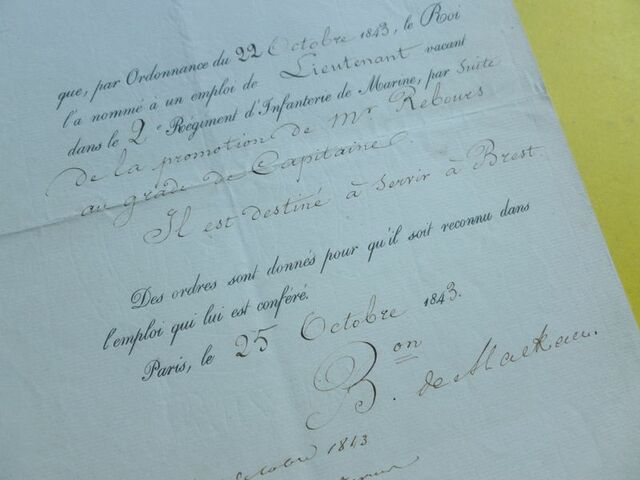 que, par Ordonnance du 22 Octobre 1843, le Roi
l'a nommé à un emploi de Lieutenant vacant
dans le 2e Régiment d'Infanterie de Marine, par Suite
de la promotion de Mr Rebours
au grade de Capitaine.
Il est destiné à servir à Brest.
Des ordres sont donnés pour qu'il soit reconnu dans
l'emploi qui lui est conféré.
Paris, le 25 Octobre 1843.
Bon de Mackau.
octobre 1843